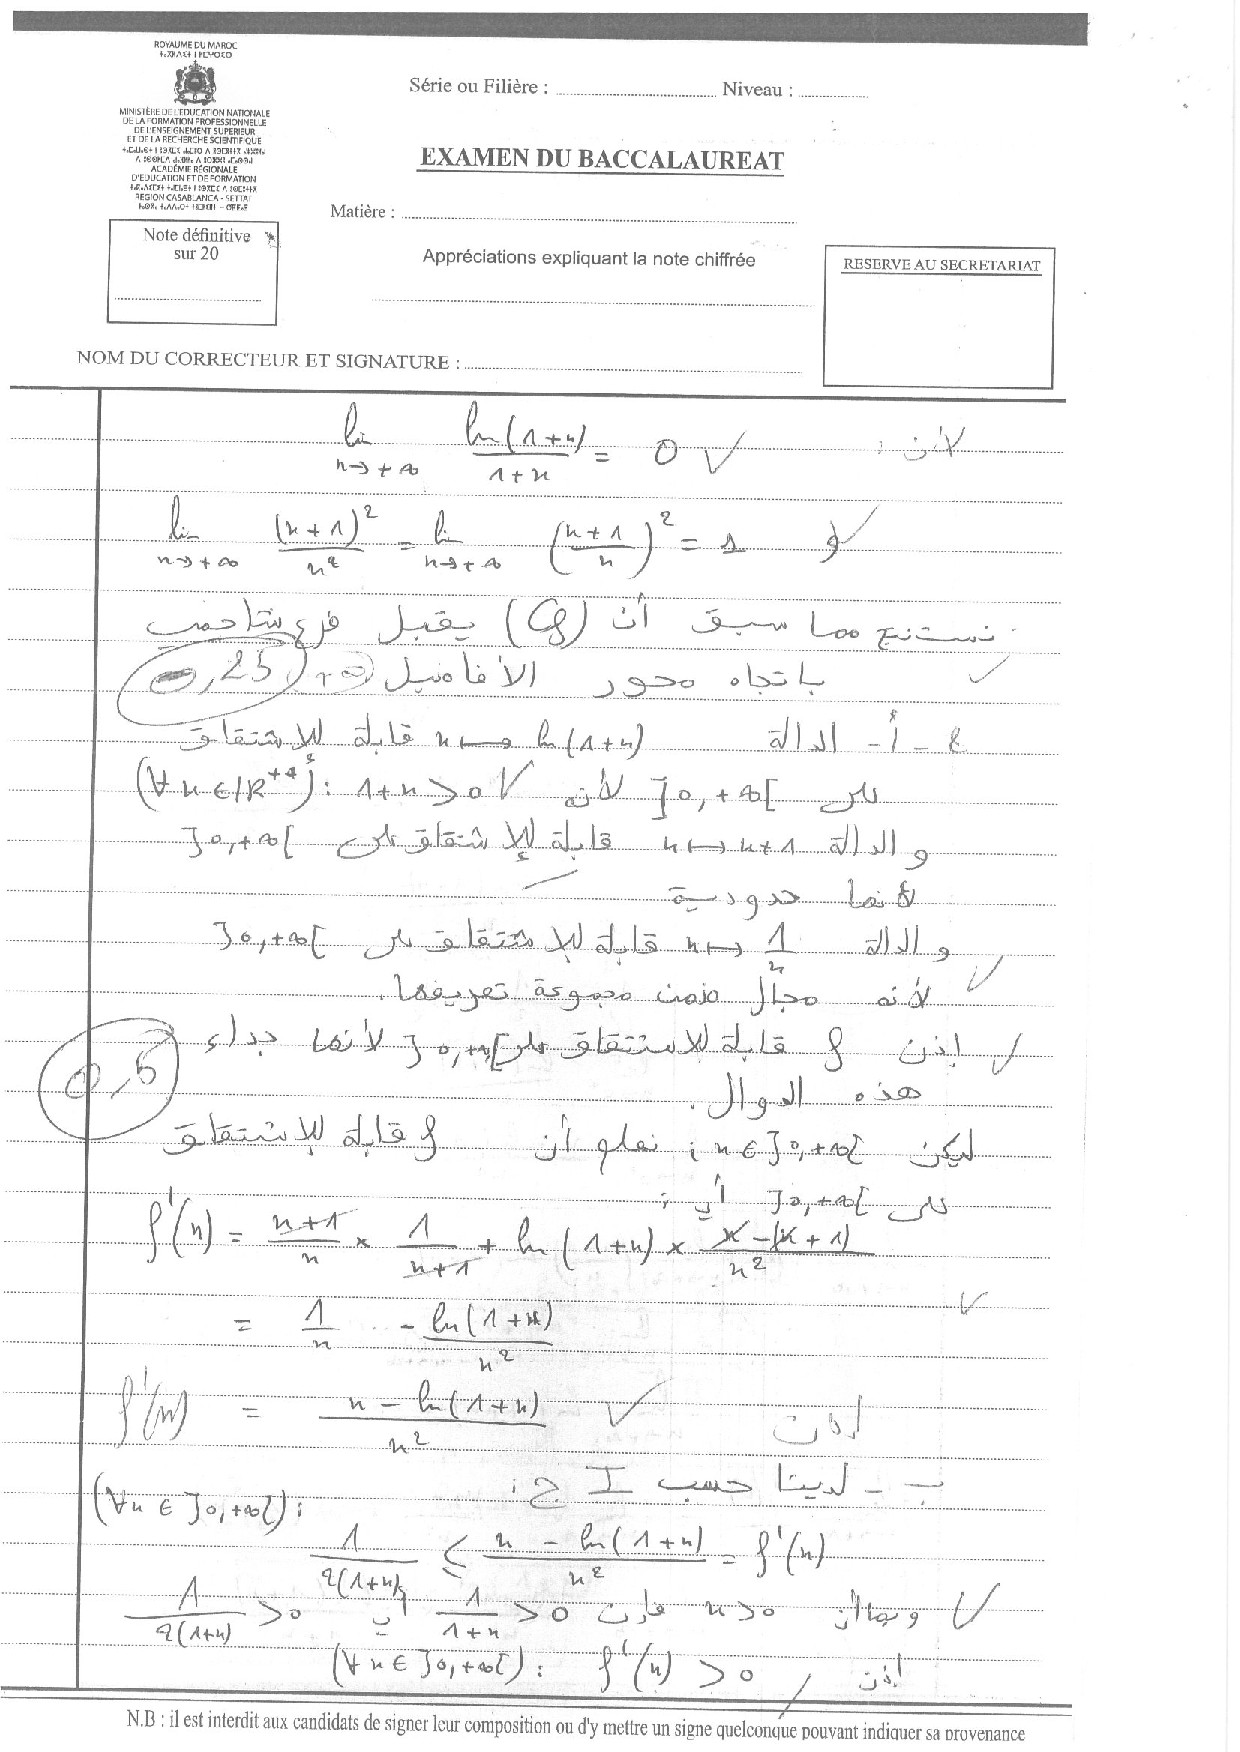 ROYAUME DU MAROC
MINISTÈRE DE L'EDUCATION NATIONALE
DE LA FORMATION PROFESSIONNELLE
DE L'ENSEIGNEMENT SUPERIEUR
ET DE LA RECHERCHE SCIENTIFIQUE
ACADÉMIE RÉGIONALE
D'EDUCATION ET DE FORMATION
REGION CASABLANCA - SETTAT
Série ou Filière : Niveau :
EXAMEN DU BACCALAUREAT
Matière :
Note définitive
sur 20
Appréciations expliquant la note chiffrée
RESERVE AU SECRETARIAT
NOM DU CORRECTEUR ET SIGNATURE :
لأن : lim x→+∞ ln(1+x)/(1+x) = 0 ✓
و lim x→+∞ (x+1)²/x² = lim x→+∞ ((x+1)/x)² = 1 ✓
نستنتج مما سبق أن (Cf) يقبل فرع شلجمي
باتجاه محور الأفاصيل (+∞) 0,25
4 - أ - الدالة x↦ln(1+x) قابلة للإشتقاق
على ]0,+∞[ لأنه ✓ (∀x∈IR⁺*): 1+x>0
والدالة x↦x+1 قابلة للإشتقاق على ]0,+∞[
لأنها حدودية
والدالة x↦1/x قابلة للإشتقاق على ]0,+∞[
لأنه مجال ضمن مجموعة تعريفها.
✓ إذن f قابلة للاشتقاق على ]0,+∞[ لأنها جداء
0,5
هذه الدوال.
ليكن x∈]0,+∞[ ; نعلم أن f قابلة للإشتقاق
على ]0,+∞[ أي :
f'(x) = (x+1)/x × 1/(x+1) + ln(1+x) × (x-(x+1))/x²
= 1/x - ln(1+x)/x² ✓
إذن f'(x) = (x-ln(1+x))/x² ✓
ب - لدينا حسب I ج :
(∀x∈]0,+∞[):
1/(2(1+x)) < (x - ln(1+x))/x² = f'(x)
✓ وبما أن x>0 فإن 1/(1+x) >0 أي 1/(2(1+x)) >0
إذن (∀x∈]0,+∞[): f'(x) >0
N.B : il est interdit aux candidats de signer leur composition ou d'y mettre un signe quelconque pouvant indiquer sa provenance